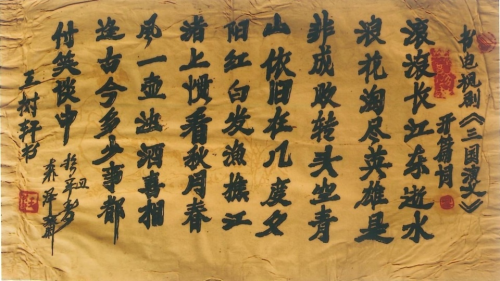 书电视剧《三国演义》
开篇词
滚滚长江东逝水
浪花淘尽英雄是
非成败转头空青
山依旧在几度夕
阳红白发渔樵江
渚上惯看秋月春
风一壶浊酒喜相
逢古今多少事都
付笑谈中
王树轩书